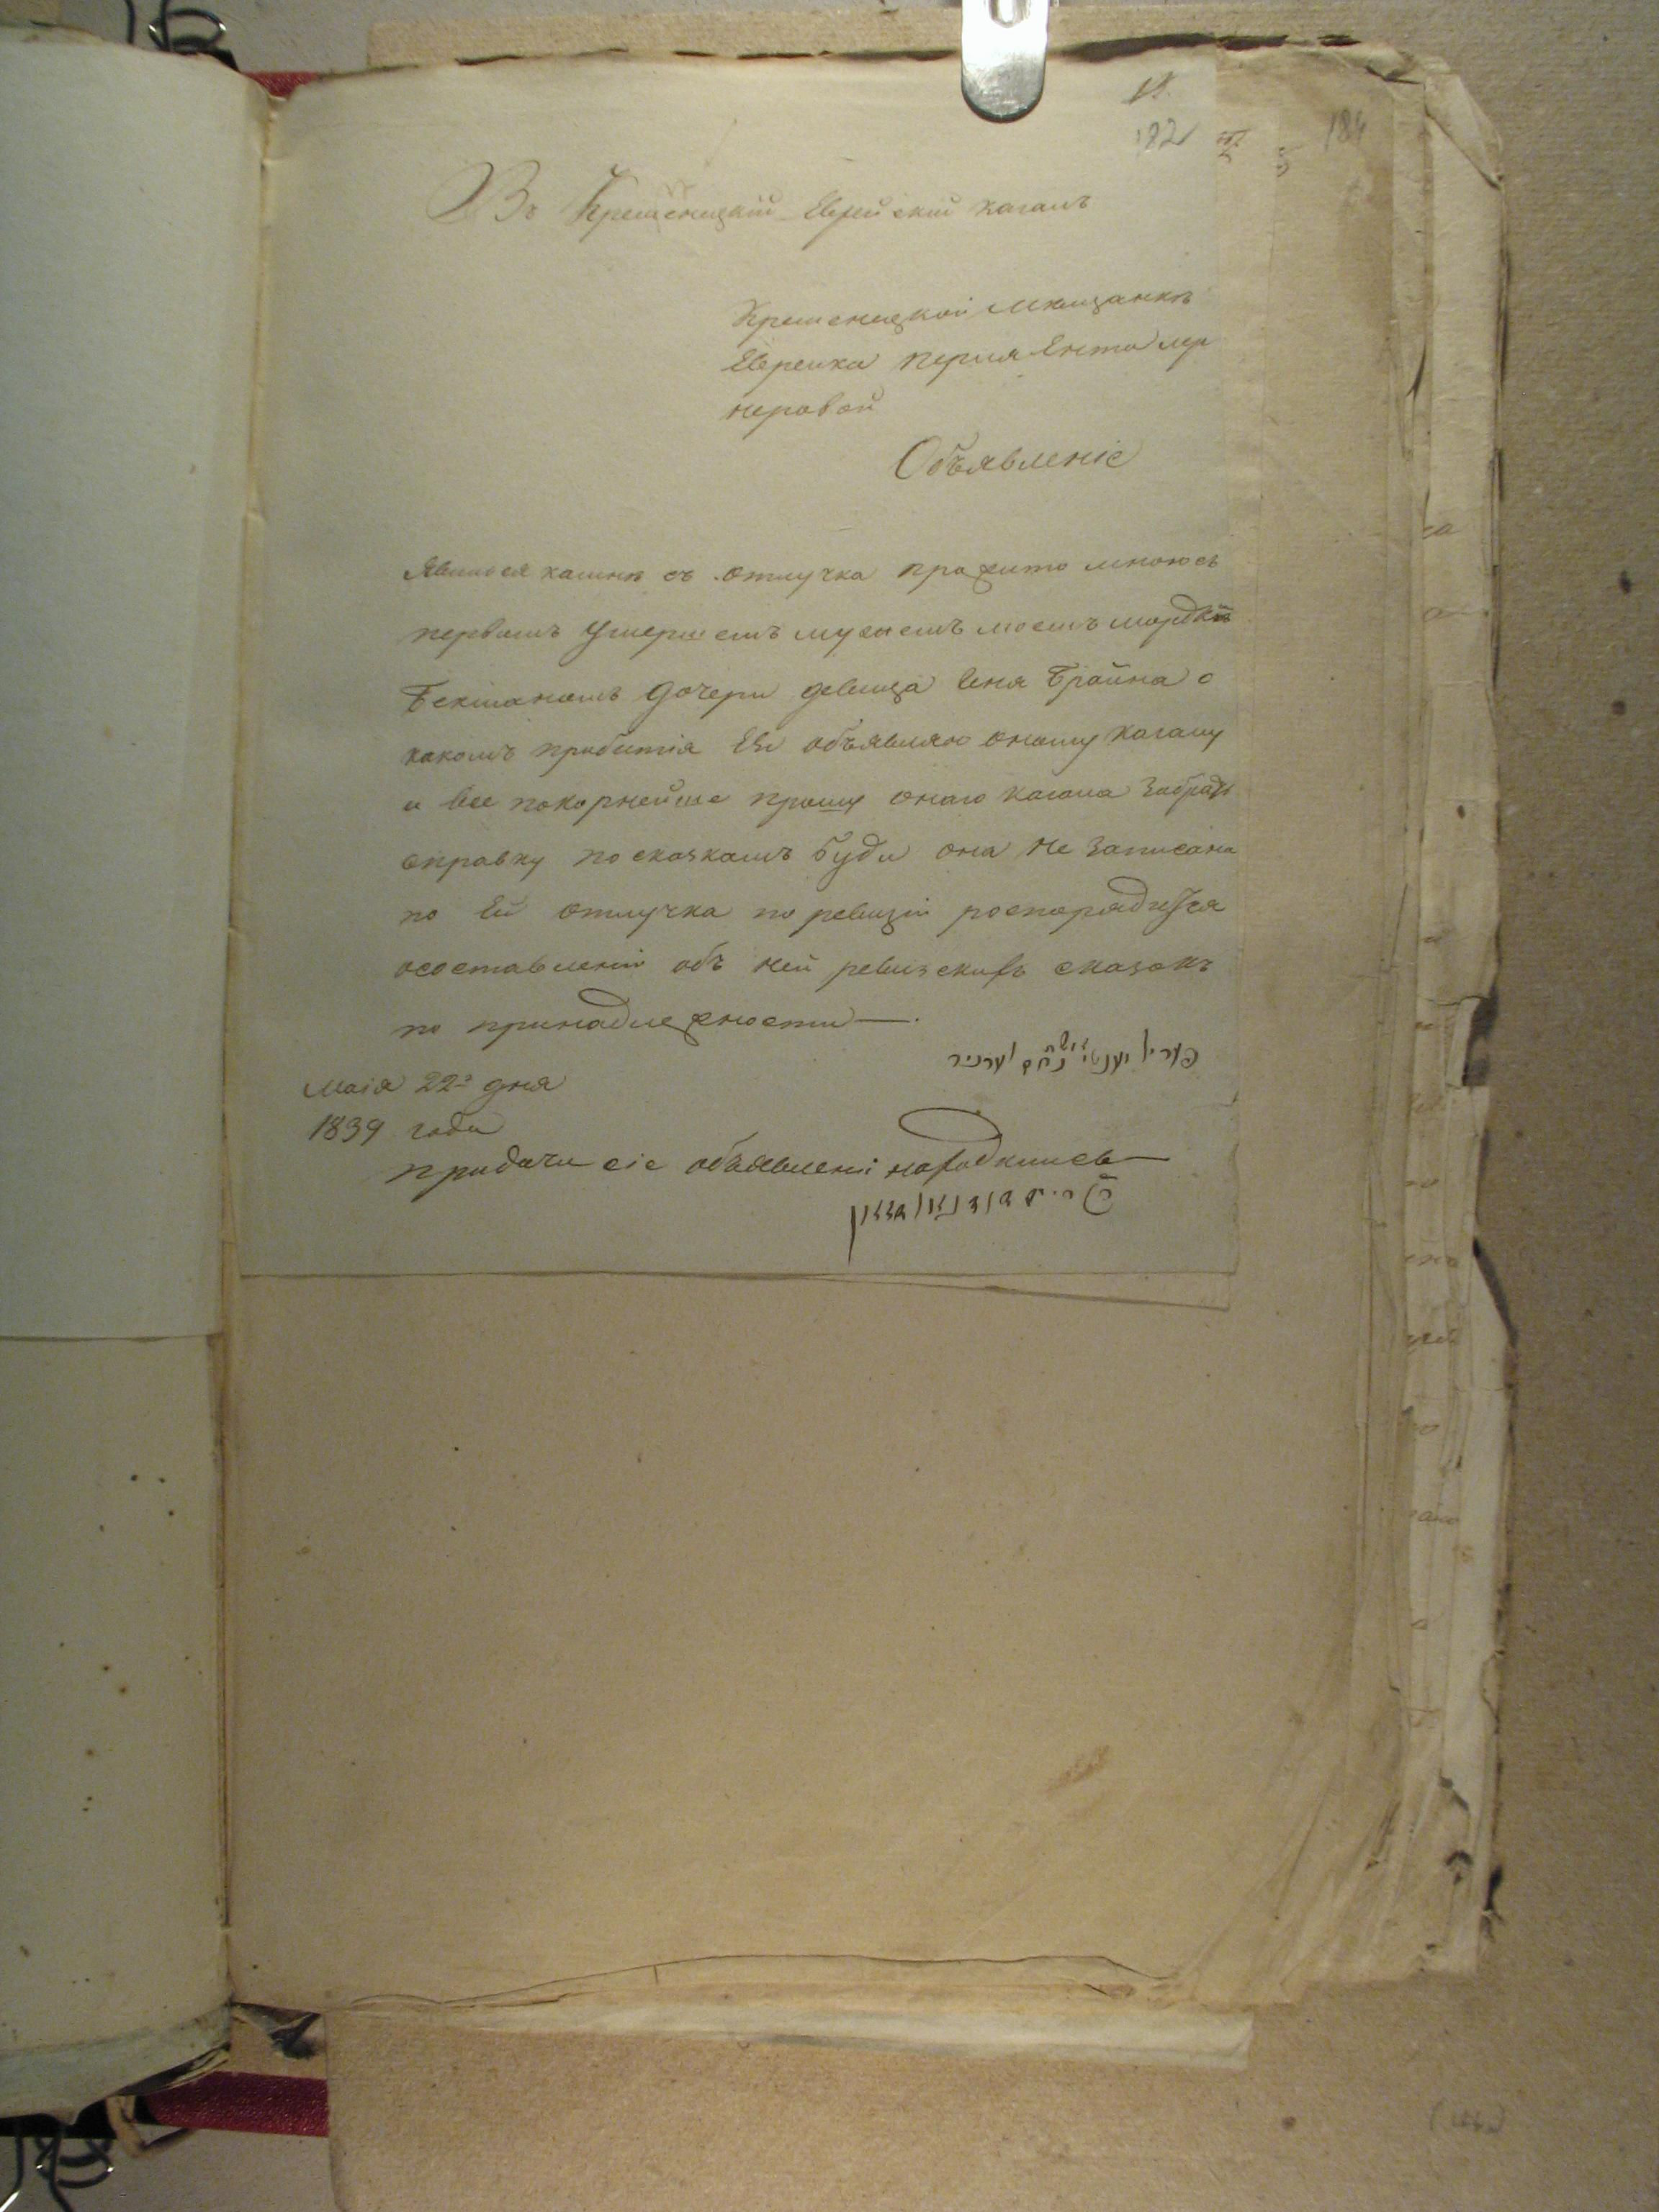 182
184
Въ Кременецкій Еврейскій кагалъ
Кременецкой мещанки
Еврейки Перля Ента Лер
неровой
Объявленіе
Явилося камнѣ съ отлучка прожито мною съ
первымъ Умершемъ мужемъ моемъ Мордкѣ
Бекманомъ дочери девица Ченя Брайна о
какомъ прибытія Ей объявляю оному кагалу
и все покорнейше прошу онаго кагала Забрать
справку по сказкамъ буди она не записана
по Ей отлучка по ревизіи роспорядится
осоставленіи объ ней ревизскихъ сказокъ
по принадлежности
פעריל יענטי לערנער
Маія 22го дня
1839 года
придачи сіе объявлені находились